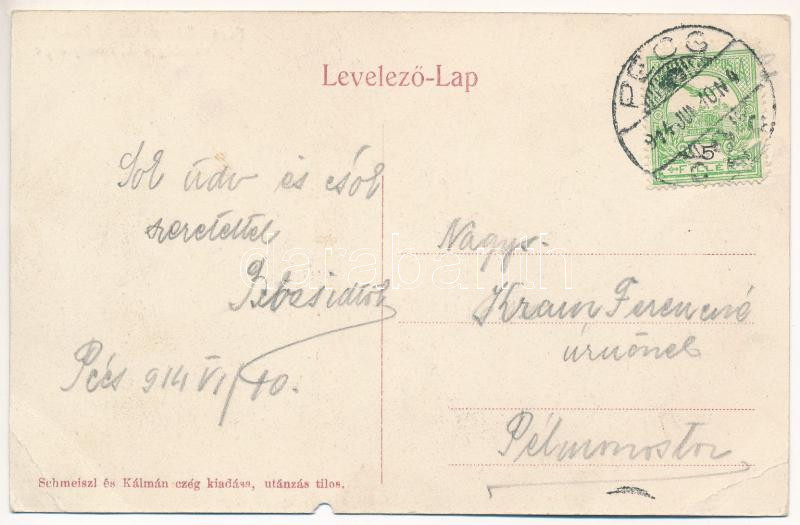 Levelező-Lap
PÉCS
914 JUN. 10
5
FILLÉR
Sok üdv és csók
szeretettel
Pécs 914 VI/10.
Nagys.
Ferencné
úrnőnek
Pélmonostor
darabanth
Schmeiszl és Kálmán czég kiadása, utánzás tilos.